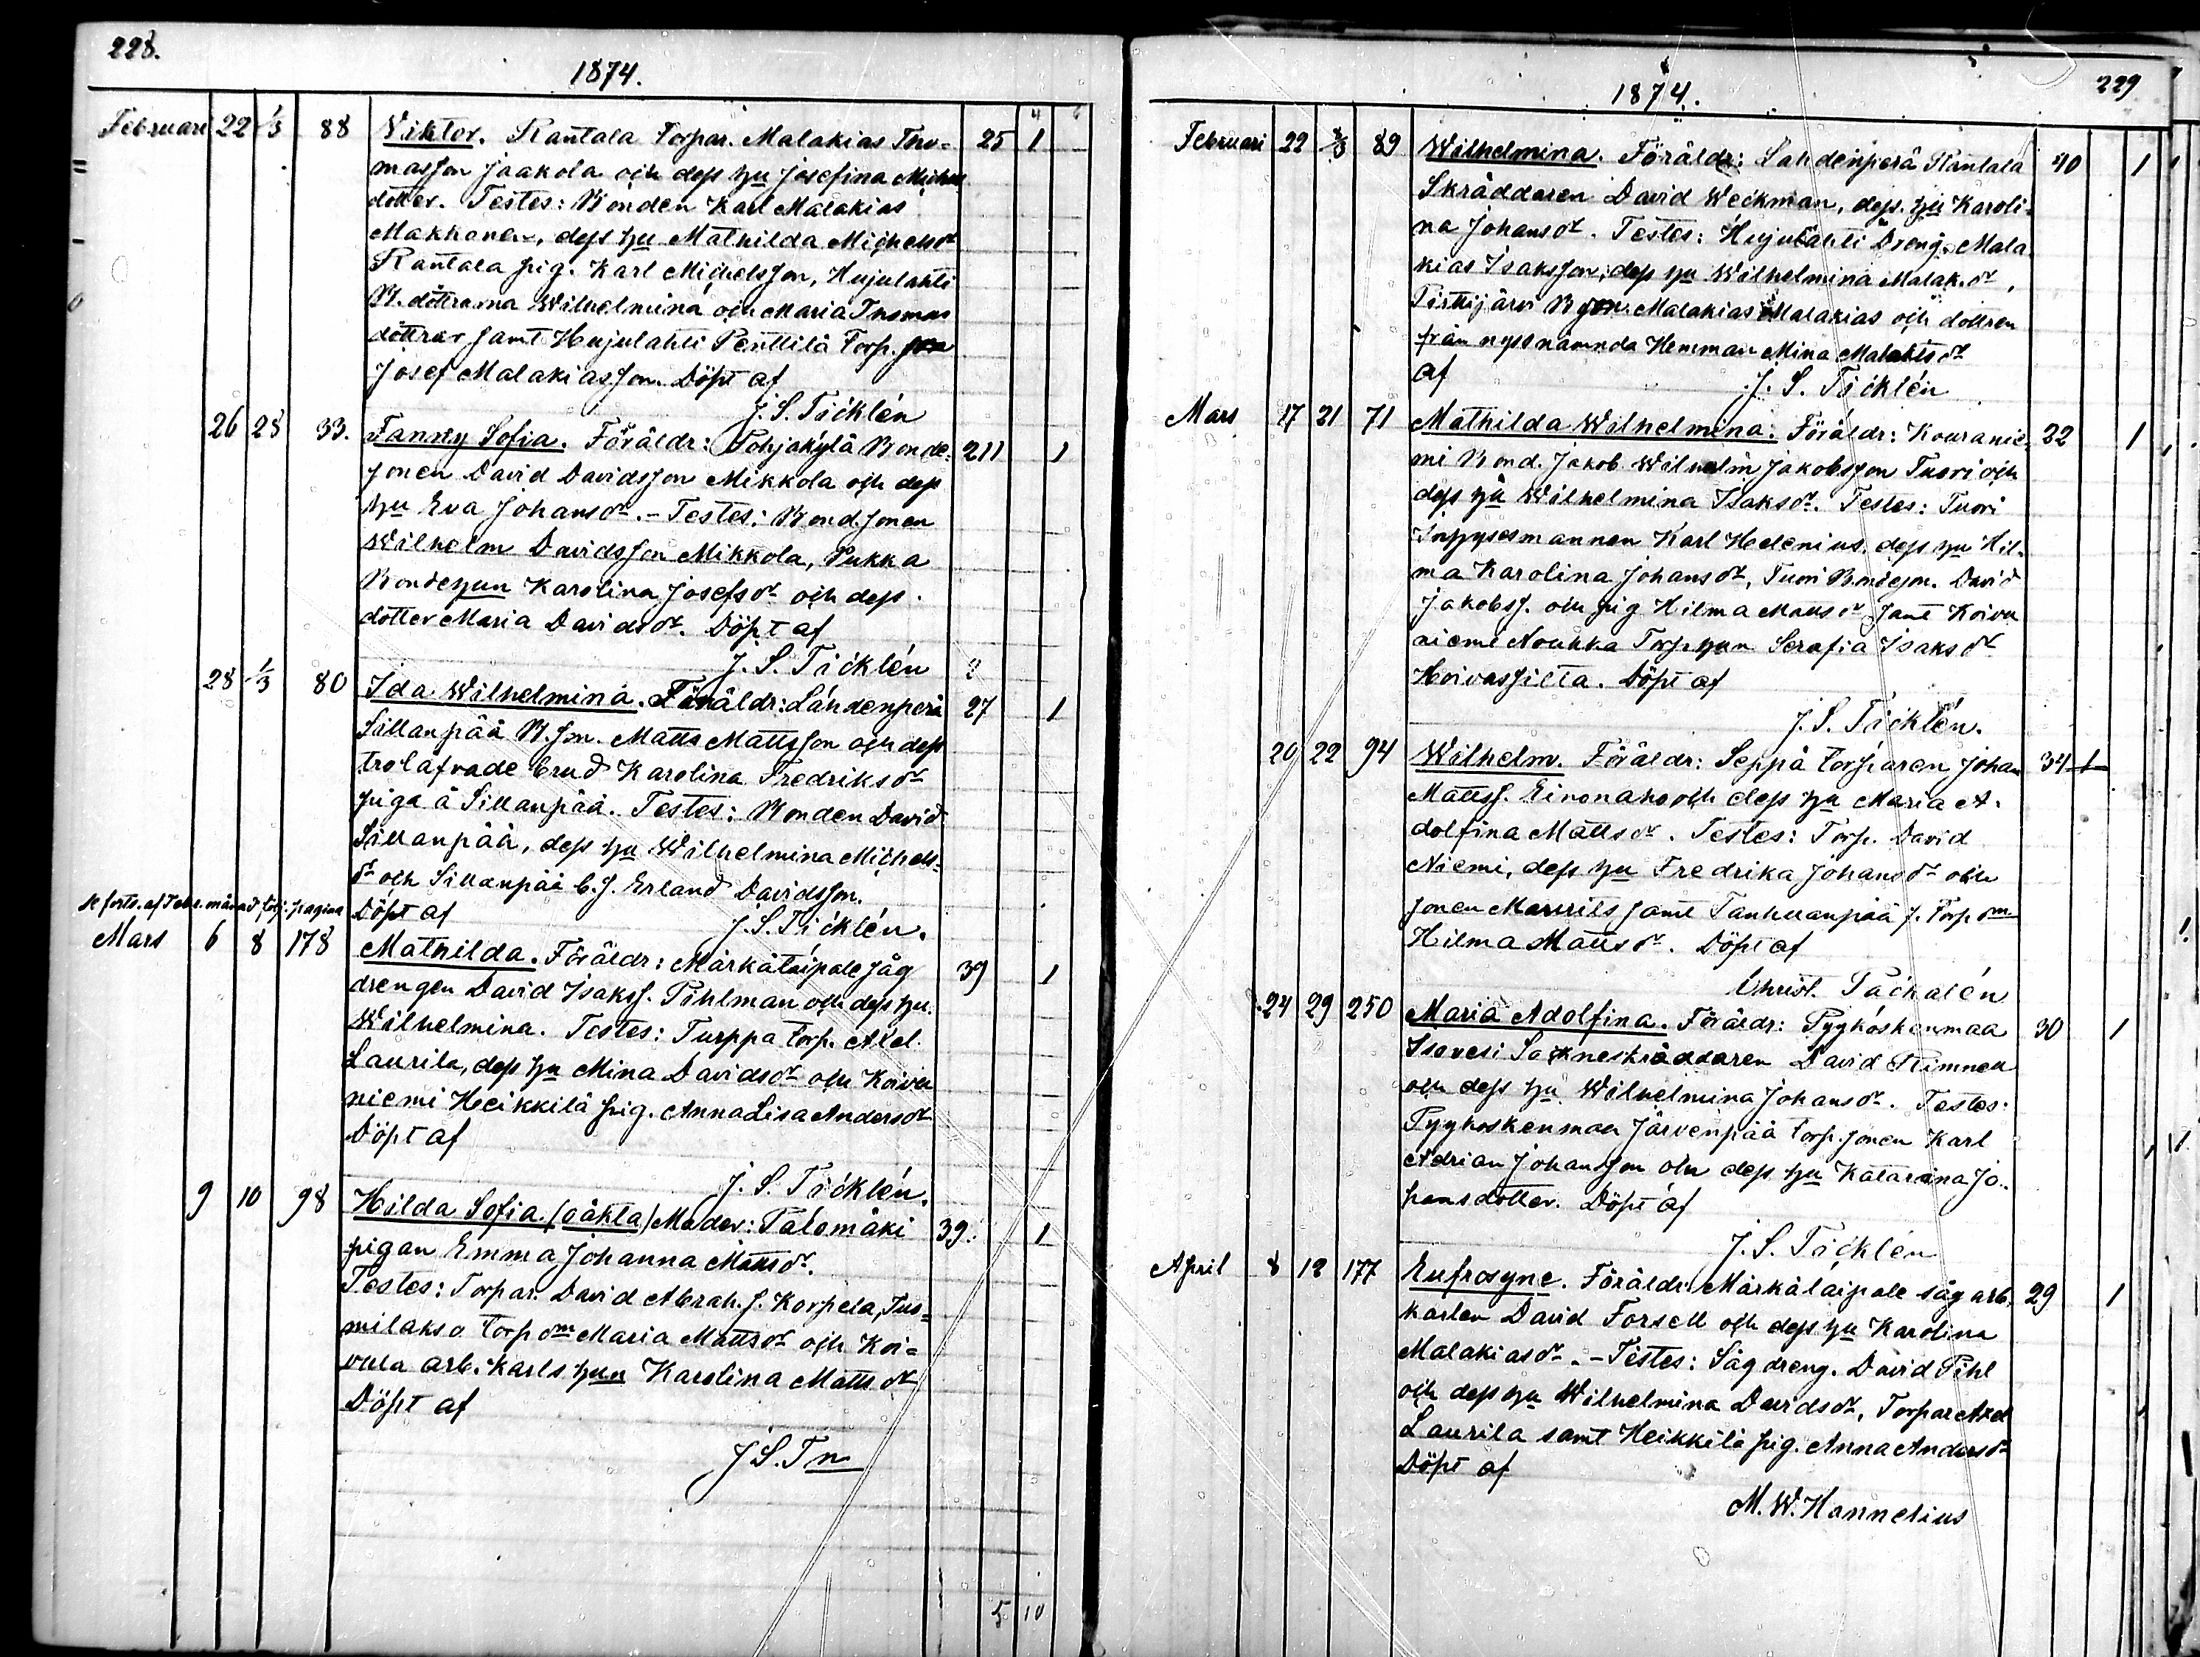 228.
1874.
Februari 22 1/3 88 Viktor. Rantala Torpar. Malakias Tho= 25 1
masson Jaakola och dess hu Josefina Michels
dotter. Testes: Bonden Karl Malakias
Makkonen, dess hu Mathilda Michelsdr
Rantala pig. Karl Michelsson, Hujulahti
B. döttrarna Wilhelmina och Maria Thomas
döttrar samt Hujulahti Penttilä Torp. son
Josef Malakiasson. Döpt af
J. S. Ticklén
26 28 33. Fanny Sofia. Föräldr: Pohjakylä Bonde= 211 1
sonen David Davidsson Mikkola och dess
hu Eva Johansdr. – Testes: Bond.sonen
Wilhelm Davidsson Mikkola, Pukka
Bondehun Karolina Josefsdr och dess
dotter Maria Davidsdr. Döpt af
J. S. Ticklén
28 1/3 80 Ida Wilhelmina. Föräldr: Lahdenperä 27 1
Sillanpää B. son. Matts Mattsson och dess
trolåfvade brud Karolina Fredriksdr
piga å Sillanpää. Testes: Bonden David
Sillanpää, dess hu Wilhelmina Michels-
dr och Sillanpää b. s. Erland Davidsson.
se forts. af Febr. månad följ. pagina Döpt af
J. S. Ticklén.
Mars 6 8 178 Mathilda. Föräldr: Märkätaipale såg 39 1
drengen David Isakss. Pihlman och dess hu
Wilhelmina. Testes: Turppa torp. Axel
Laurila, dess hu Mina Davidsdr och Koivu
niemi Heikkilä pig. Anna Lisa Andersdr
Döpt af
J. S. Ticklén.
9 10 98 Hilda Sofia. (oäkta) Moder: Talomäki 39. 1
pigan Emma Johanna Mattsdr.
Testes: Torpar. David Abrah. s. Korpela, Tuo=
milakso torp om Maria Mattsdr och Koi=
vula arb. karls hun Karolina Mattsdr
Döpt af
J S. Tn
5 10
1874.
229
Februari 22 2/3 89 Wilhelmina. Föräldr: Lahdenperä Rantala 40 1
Skräddaren David Weckman, dess. hu Karoli-
na Johansdr. Testes: Hujulahti Dreng. Mala
kias Isaksson, dess hu Wilhelmina Malak.dr,
Pirttijärvi B son. Malakias Malakias och dottren
från nyss nämnda Hemman Mina Malaktsdr
af
J. S. Ticklén
Mars 17 21 71 Mathilda Wilhelmina. Föräldr: Kouranie- 22 1
mi Bond. Jakob Wilhelm Jakobsson Tuori och
dess hu Wilhelmina Isaksdr. Testes: Tuori
Inhysesmannen Karl Helenius, dess hu Hil-
ma Karolina Johansdr, Tuori Bondeson. David
Jakobss. och pig Hilma Mattsdr samt Koivu
niemi Noukka Torp.hun Serafia Isaksdr
Hoivassilta. Döpt af
J. S. Ticklén.
20 22 94 Wilhelm. Föräldr: Seppä torparen Johan 34 1
Mattss. Einonaho och dess hu Maria A-
dolfina Mattsdr. Testes: Torp. David
Niemi, dess hu Fredrika Johansdr och
sonen Maurits samt Tanhuanpää f. Torp om
Hilma Mattsdr. Döpt af
Christ. Tackalén
24 29 250 Maria Adolfina. Föräldr: Pyyhöskenmaa 30 1
Isovesi Sockneskräddaren David Rimnell
och dess hu Wilhelmina Johansdr. Testes:
Pyyhoskenmaa Järvenpää torp. sonen Karl
Adrian Johansson och dess hu Katarina Jo-
hansdotter. Döpt af
J. S. Ticklén
April 8 12 177 Eufrosyne. Föräldr: Märkälaipale såg arb. 29 1
karlen David Forsell och dess hu Karolina
Malakiasdr. – Testes: Såg dreng. David Pihl
och dess hu Wilhelmina Davidsdr, Torpar Axel
Laurila samt Heikkilä pig. Anna Andersdr
Döpt af
M. W. Hannelius